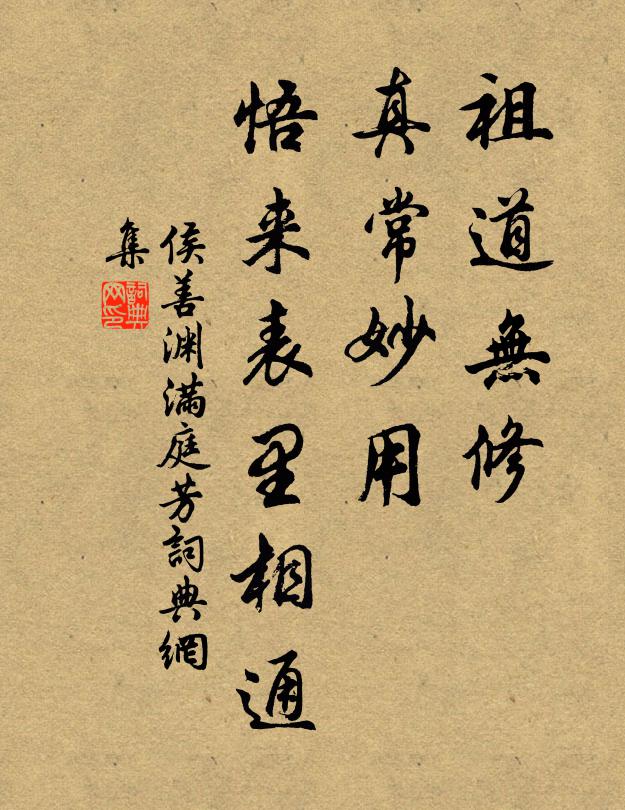 祖道無修
真常妙用
悟来表里相通
侯善渊满庭芳詞典網
集
詞典網印